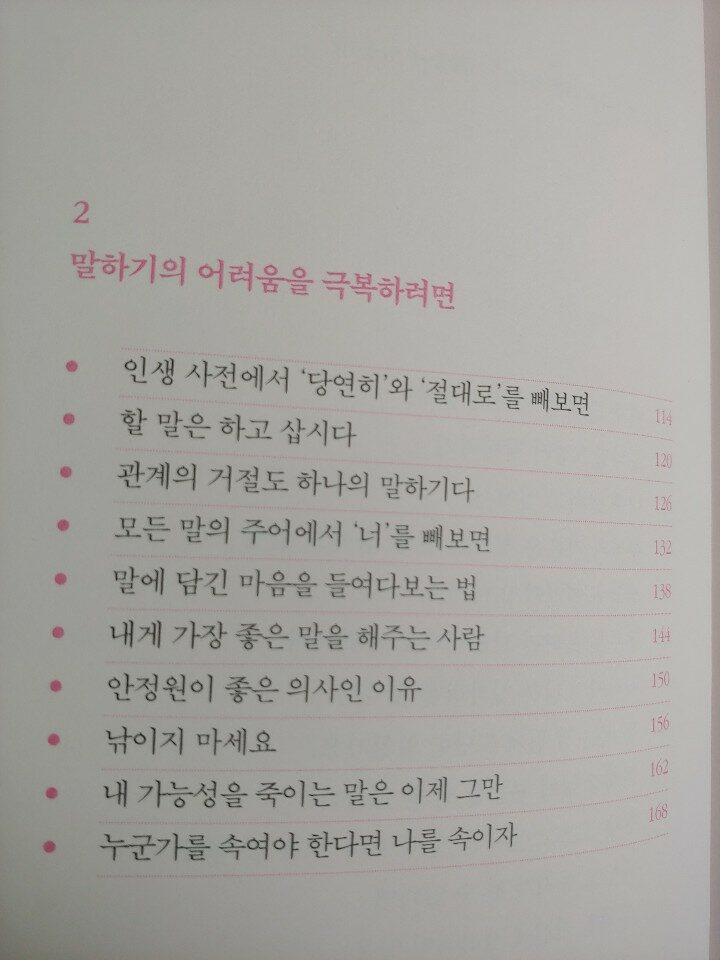 2
말하기의 어려움을 극복하려면
인생 사전에서 ‘당연히’와 ‘절대로’를 빼보면 114
할 말은 하고 삽시다 120
관계의 거절도 하나의 말하기다 126
모든 말의 주어에서 ‘너’를 빼보면 132
말에 담긴 마음을 들여다보는 법 138
내게 가장 좋은 말을 해주는 사람 144
안정원이 좋은 의사인 이유 150
낚이지 마세요 156
내 가능성을 죽이는 말은 이제 그만 162
누군가를 속여야 한다면 나를 속이자 168